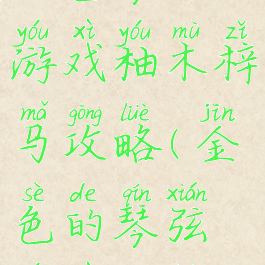 yóu xì yóu mù zǐ
游戏柚木梓
mǎ gōng lüè jīn
马攻略(金
sè de qín xián
色的琴弦